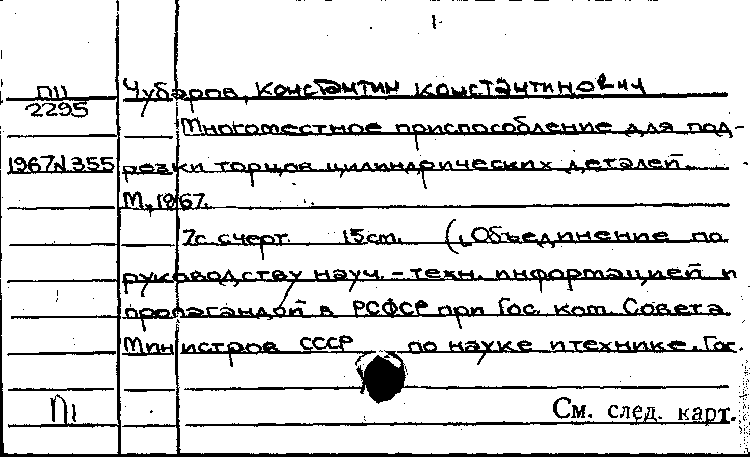 П11
2295
Чубаров, Константин Константинович
Многоместное приспособление для под-
1967 № 355 резки торцов цилиндрических деталей.
М., 1967.
7с. с черт. 15 cm. (Объединение по
руководству науч.-техн. информацией и
пропагандой в РСФСР при Гос. ком. Совета
Министров СССР по науке и технике. Гос.
П1
См. след. карт.